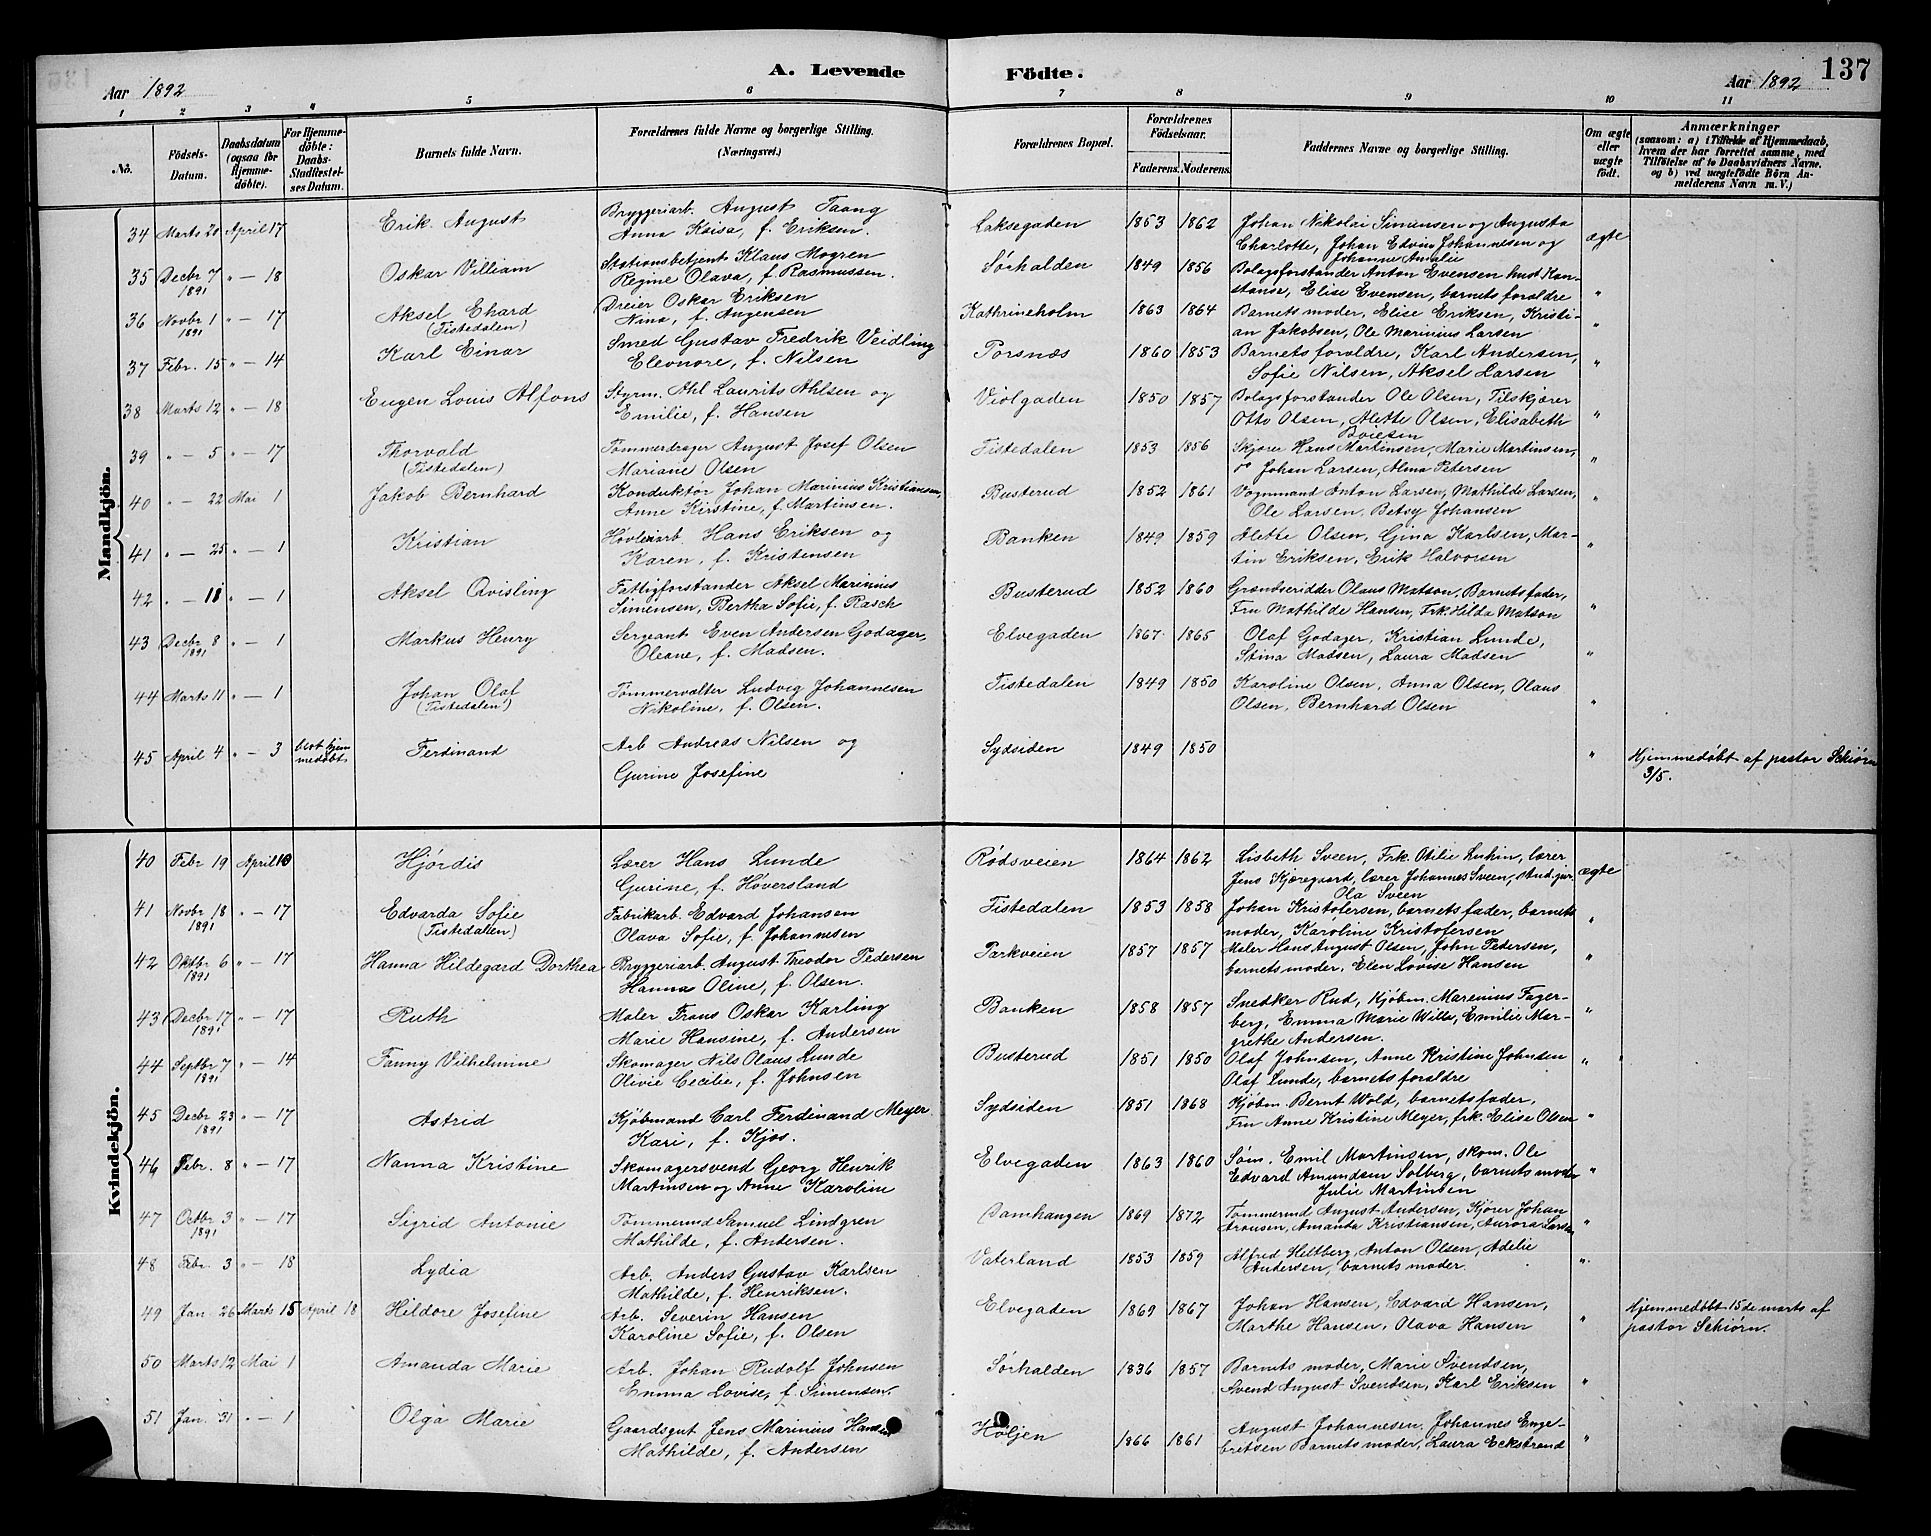 A. Levende Födte.
137
Aar 1892
Aar 1892
1 2 3 4 5 6 7 8 9 10 11
No.
Födsels-Datum.
Daabsdatum (ogsaa for Hjemme-döbte).
For Hjemme-döbte: Daabs-Stadfestel-ses Datum.
Barnets fulde Navn.
Forældrenes fulde Navne og borgerlige Stilling. (Næringsvei.)
Forældrenes Bopæl.
Forældrenes Födselsaar.
Faderens. Moderens.
Faddernes Navne og borgerlige Stilling.
Om ægte eller uægte født.
Anmærkninger
(saasom: a) i Tilfælde af Hjemmedaab, hvem der har forrettet samme, med Tilföielse af to Daabsvidners Navne, og b) ved uægtefödte Börn An-melderens Navn m. V.)
Mandkjön.
34 Marts 20 April 17 Erik August Bryggeriarb. August Taang Laksegaden 1863 1862 Johan Nikolai Simensen og Augusta
Anna Kaisa, f. Eriksen. Charlotte, Johan Edvin Johannesen og ægte
Johanne Amalie
35 Decbr 7 1891 " — 18 Oskar Villiam Stationsbetjent Klaus Mogren Sørhalden 1849 1856 Bolagsforstander Anton Evensen hust Kon-
Regine Olava, f. Rasmussen. stanse, Elise Evensen, barnets forældre "
36 Novbr 1 1891 " — 17 Aksel Ehard Dreier Oskar Eriksen Kathrineholm 1863 1864 Barnets moder, Elise Eriksen, Kristi-
(Tistedalen) Nina, f. Augensen an Jakobsen, Ole Marinius Larsen "
37 Febr. 15 " — 14 Karl Einar Smed Gustav Fredrik Veidling Torsnæs 1860 1853 Barnets forældre, Karl Andersen,
Eleonore, f. Nilsen Sofie Nilsen, Aksel Larsen "
38 Marts 12 " — 18 Eugen Louis Alfons Styrm. Ahl Laurits Ahlsen og Violgaden 1850 1857 Bolagsforstander Ole Olsen, Tilskjærer
Emilie, f. Hansen Otto Olsen, Alette Olsen, Elisabeth "
Boiesen
39 " — 5 " — 17 Thorvald Tømmerdrager August Josef Olsen Tistedalen 1853 1856 Skjører Hans Martinsen, Marie Martinsen,
(Tistedalen) Mariane Olsen do Johan Larsen, Alma Petersen "
40 " — 22 Mai 1 Jakob Bernhard Konduktør Johan Marinius Kristiansen, Busterud 1852 1861 Vognmand Anton Larsen, Mathilde Larsen,
Anne Kirstine, f. Martinsen. Ole Larsen, Betsy Johansen "
41 " — 25 " — 1 Kristian Høvleriarb. Hans Eriksen og Banken 1849 1859 Alette Olsen, Gina Karlsen, Mar-
Karen, f. Kristensen tin Eriksen, Erik Halvorsen "
42 " — 18 " — 1 Aksel Qvisling Fattigforstander Aksel Marinius Busterud 1852 1860 Grændseridder Olaus Matson, Barnets fader,
Simensen, Bertha Sofie, f. Rasch Fru Mathilde Hansen, Frk. Hilda Matson "
43 Decbr 8 1891 " — 1 Markus Henry Sergeant Even Andersen Godager, Elvegaden 1867 1865 Olaf Godager, Kristian Lunde,
Oleane, f. Madsen. Stina Madsen, Laura Madsen "
44 Marts 11 " — 1 Johan Olaf Tømmervalter Ludvig Johannesen Tistedalen 1849 1850 Karoline Olsen, Anna Olsen, Olaus
(Tistedalen) Nikoline, f. Olsen. Olsen, Bernhard Olsen "
45 April 4 " — 3 blot hjem medøbt Ferdinand Arb Andreas Nilsen og Sydsiden 1849 1850 " Hjemmedøbt af pastor Schiørn
Gurine Josefine 3/5.
Kvindekjön.
40 Febr 19 April 18 Hjørdis Lærer Hans Lunde Rødsveien 1864 1862 Lisbeth Sveen, Frk. Otilie Lukin, lærer
Gurine, f. Høversland Jens Kjæregaard, lærer Johannes Sveen, stud. jur. ægte
Ola Sveen
41 Novbr 18 1891 " — 17 Edvarda Sofie Fabrikarb. Edvard Johansen Tistedalen 1853 1858 Johan Kristofersen, barnets fader, barnets
(Tistedalen) Olava Sofie, f. Johannesen moder, Karoline Kristofersen "
42 Oktbr 6 1891 " — 17 Hanna Hildegard Dorthea Bryggeriarb. August Theodor Pedersen Parkveien 1857 1857 Maler Hans August Olsen, John Pedersen,
Hanna Oline, f. Olsen. barnets moder, Elen Lovise Hansen "
43 Decbr 17 1891 " — 17 Ruth Maler Frans Oskar Karling Banken 1858 1857 Snedker Rud, Kjøbm. Marenius Fager-
Marie Hansine, f. Andersen berg, Emma Marie Wille, Emilie Mar- "
grethe Andersen.
44 Septbr 7 1891 " — 14 Fanny Vilhelmine Skomager Nils Olaus Lunde Busterud 1851 1850 Olaf Johnsen, Anne Kristine Johnsen "
Olivie Cecilie, f. Johnsen Olaf Lunde, barnets forældre
45 Decbr 23 1891 " — 17 Astrid Kjøbmand Carl Ferdinand Meyer Sydsiden 1851 1868 Kjøbm. Bernt Wold, barnets fader,
Kari, f. Kjos. Fru Anne Kristine Meyer, frk. Elise Olsen "
46 Febr. 8 " — 17 Nanna Kristine Skomagersvend Georg Henrik Elvegaden 1863 1860 Søm. Emil Martinsen, skom. Ole
Martinsen og Anne Karoline Edvard Amundsen Solberg, barnets moder "
Julie Martinsen
47 Octbr 3 1891 " — 17 Sigrid Antonie Tømmermd Samuel Lindgren Damhaugen 1869 1872 Tømmermd August Andersen, Kjører Johan
Mathilde, f. Andersen. Aronsen, Amanda Kristiansen, Aurora Larsen "
48 Febr. 3 " — 18 Lydia Arb. Anders Gustav Karlsen Vaterland 1853 1859 Alfred Heltberg, Anton Olsen, Adelie
Mathilde, f. Henriksen. Andersen, barnets moder. "
49 Jan 26 Marts 15 April 18 Hildore Josefine Arb. Severin Hansen Elvegaden 1869 1867 Johan Hansen, Edvard Hansen, Hjemmedøbt 15de marts af
Karoline Sofie, f. Olsen Marthe Hansen, Olava Hansen " pastor Schiørn.
50 Marts 12 Mai 1 Amanda Marie Arb. Johan Rudolf Johnsen Sørhalden 1836 1857 Barnets moder, Marie Svendsen,
Emma Lovise, f. Simensen. Svend August Svendsen, Karl Eriksen "
51 Jan. 31 " — 1 Olga Marie Gaardsgut Jens Marinius Hansen Høljen 1866 1861 August Johannesen, Johannes Enge-
Mathilde, f. Andersen bretsen Barnets moder, Laura Eckstrand "